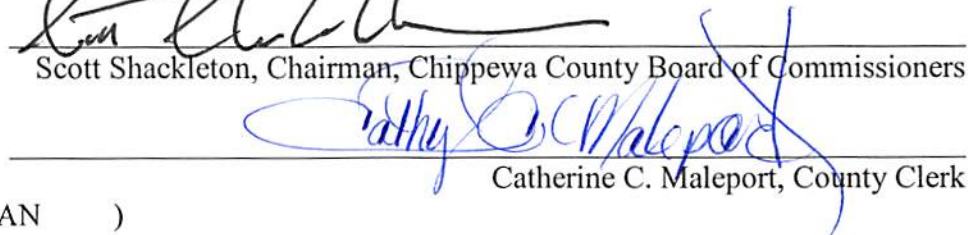 Scott Shackleton, Chairman, Chippewa County Board of Commissioners
Cathy C Maleport
Catherine C. Maleport, County Clerk
AN )